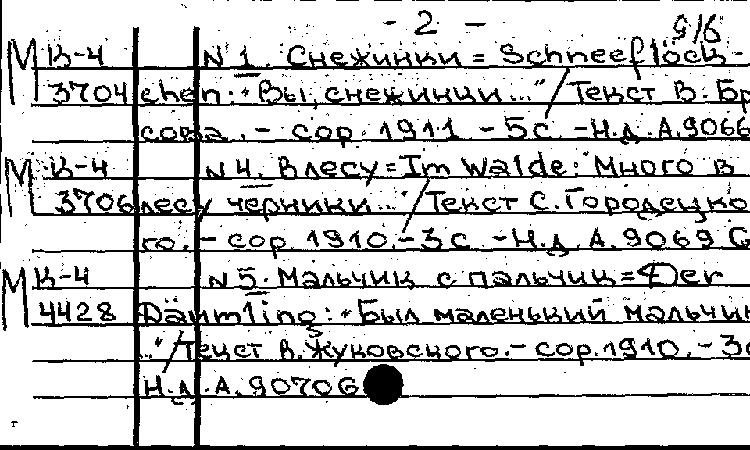 - 2 -
9/6
М К-4 N 1. Снежинки = Schneeflöck-
3704 chen: "Вы, снежинки..." / Текст В. Бр
сова. - сор. 1911 - 5с. - Н.д. А.9066
М К-4 N 4. В лесу = Im Walde: "Много в
3706 лесу черники..." / Текст С. Городецко
го. - сор 1910. - 3с. - Н.д. А. 9069 G
М К-4 N 5. Мальчик с пальчик = Der
4428 Däumling: "Был маленький мальчик
..." / Текст В. Жуковского. - сор. 1910. - 3с
Н.д. А. 9070G